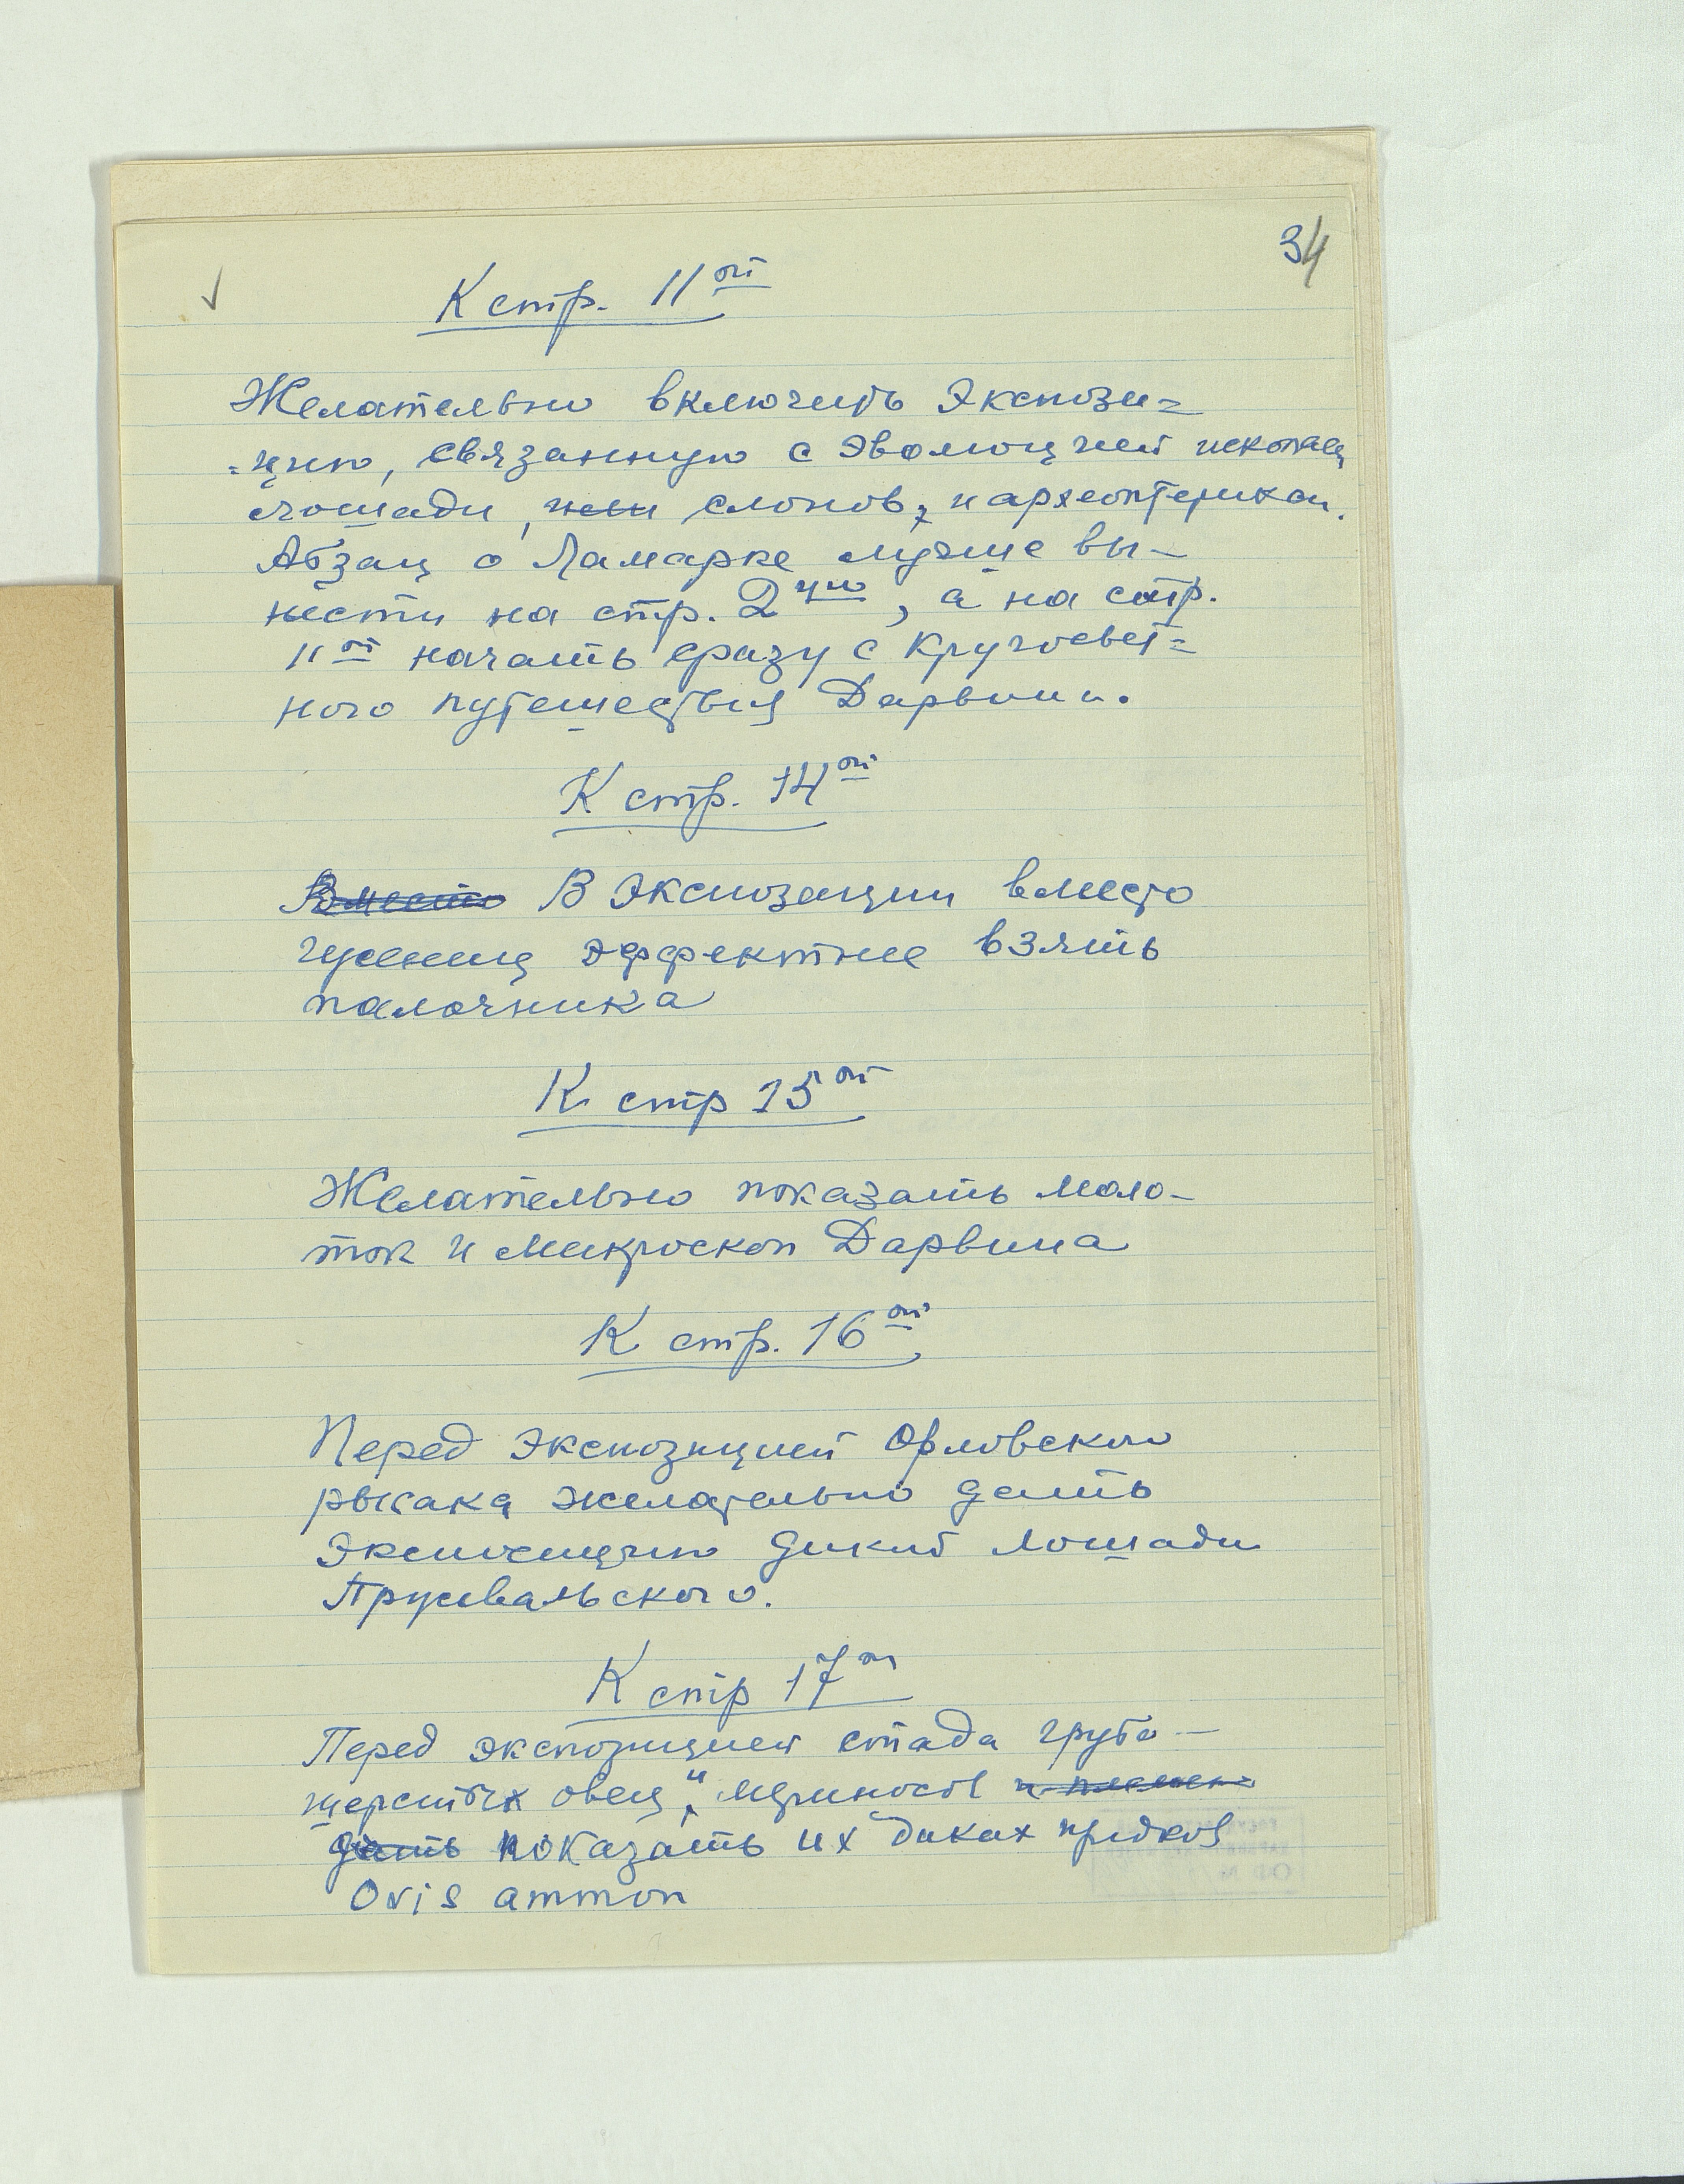 34
К стр. 11ой
Желательно включить экспози=
=цию, связанную с эволюцией ископаем
лошади, или слонов, и археоптерикса.
Абзац о Ламарке лучше вы-
нести на стр. 2ую, а на стр.
11ой начать сразу с кругосвет=
ного путешествия Дарвина.
К стр. 14ой
Вместо В экспозиции вместо
гусениц эффектнее взять
палочника
К стр 15ой
Желательно показать моло-
ток и микроскоп Дарвина
К стр. 16ой
Перед экспозицией Орловского
рысака желательно дать
экспозицию дикой лошади
Пржевальского.
К стр 17ой
Перед экспозицией стада грубо-
шерстных овец и мериносов
дать показать их диких предков
Ovis ammon